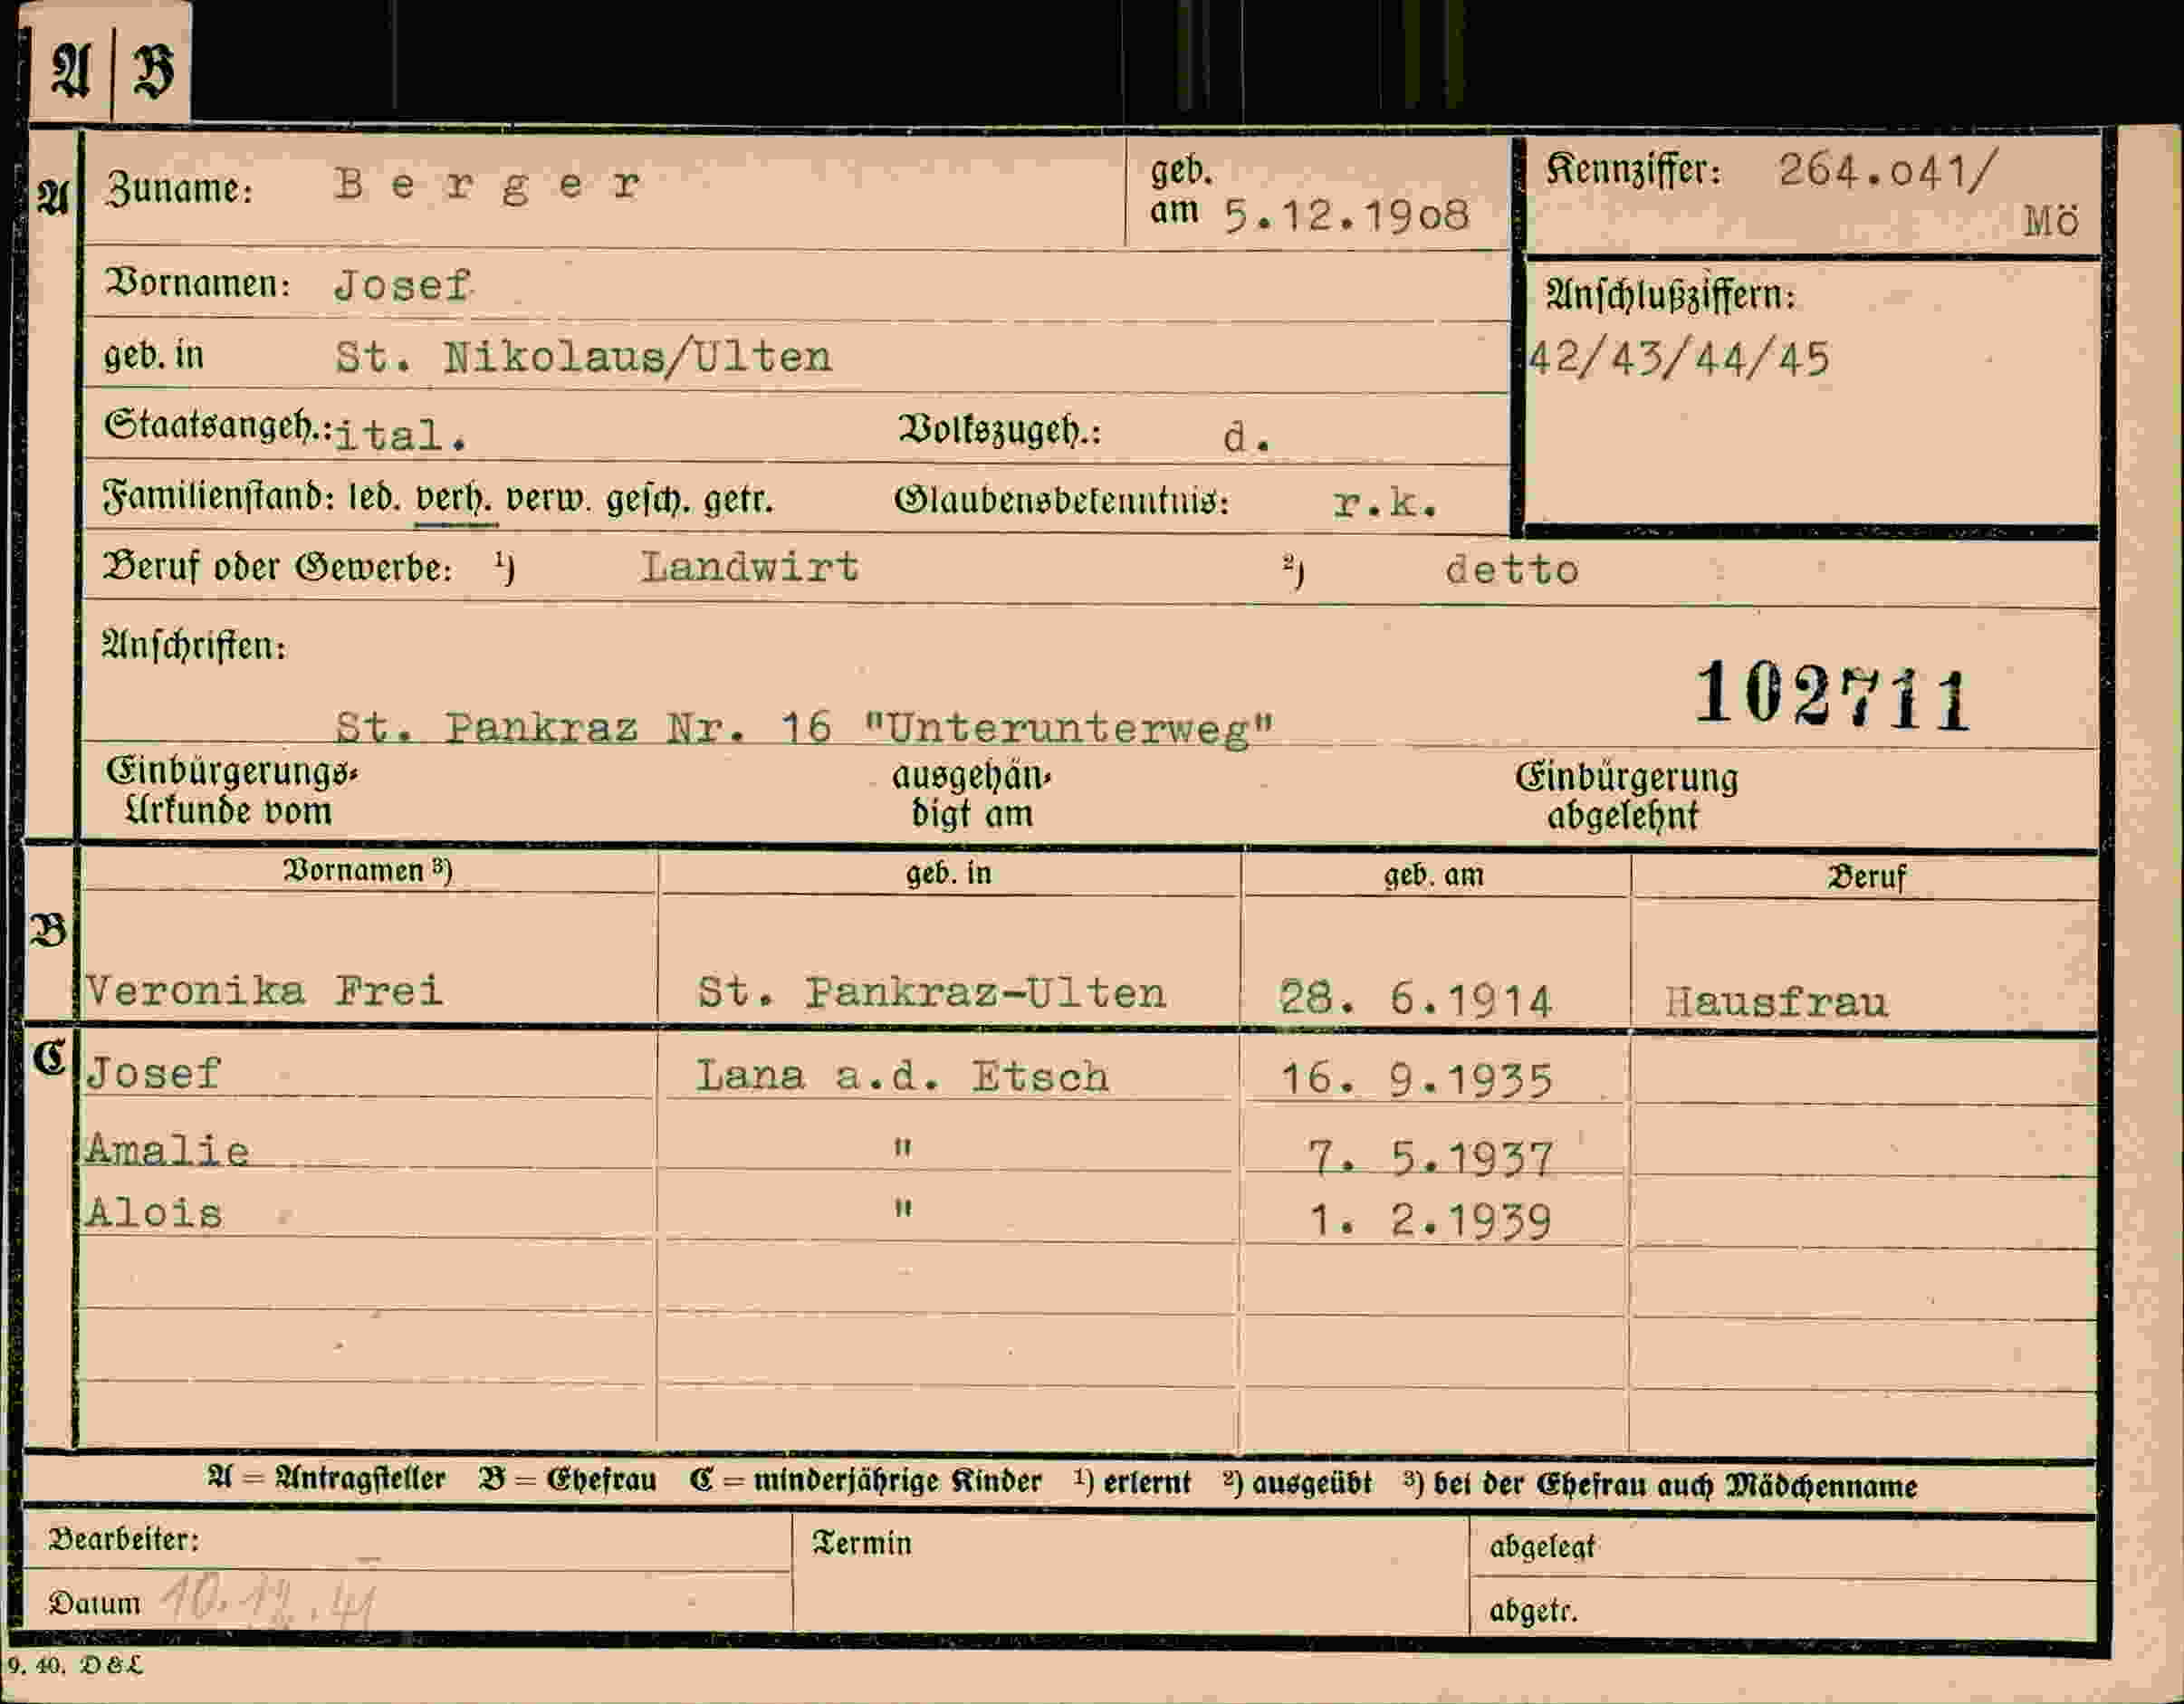 A | B
A Zuname: Berger geb. am 5.12.19o8 Kennziffer: 264.o41/ Mö
Vornamen: Josef Anschlußziffern:
geb. in St. Nikolaus/Ulten 42/43/44/45
Staatsangeh.: ital. Volkszugeh.: d.
Familienstand: led. verh. verw. gesch. getr. Glaubensbekenntnis: r.k.
Beruf oder Gewerbe: ¹) Landwirt ²) detto
Anschriften:
102711
St. Pankraz Nr. 16 "Unterunterweg"
Einbürgerungs- ausgehän- Einbürgerung
Urkunde vom digt am abgelehnt
Vornamen ³) geb. in geb. am Beruf
B
Veronika Frei St. Pankraz-Ulten 28. 6.1914 Hausfrau
C Josef Lana a.d. Etsch 16. 9.1935
Amalie " 7. 5.1937
Alois " 1. 2.1939
A = Antragsteller B = Ehefrau C = minderjährige Kinder ¹) erlernt ²) ausgeübt ³) bei der Ehefrau auch Mädchenname
Bearbeiter: Termin abgelegt
Datum 10.12.41 abgetr.
9. 40. D & L